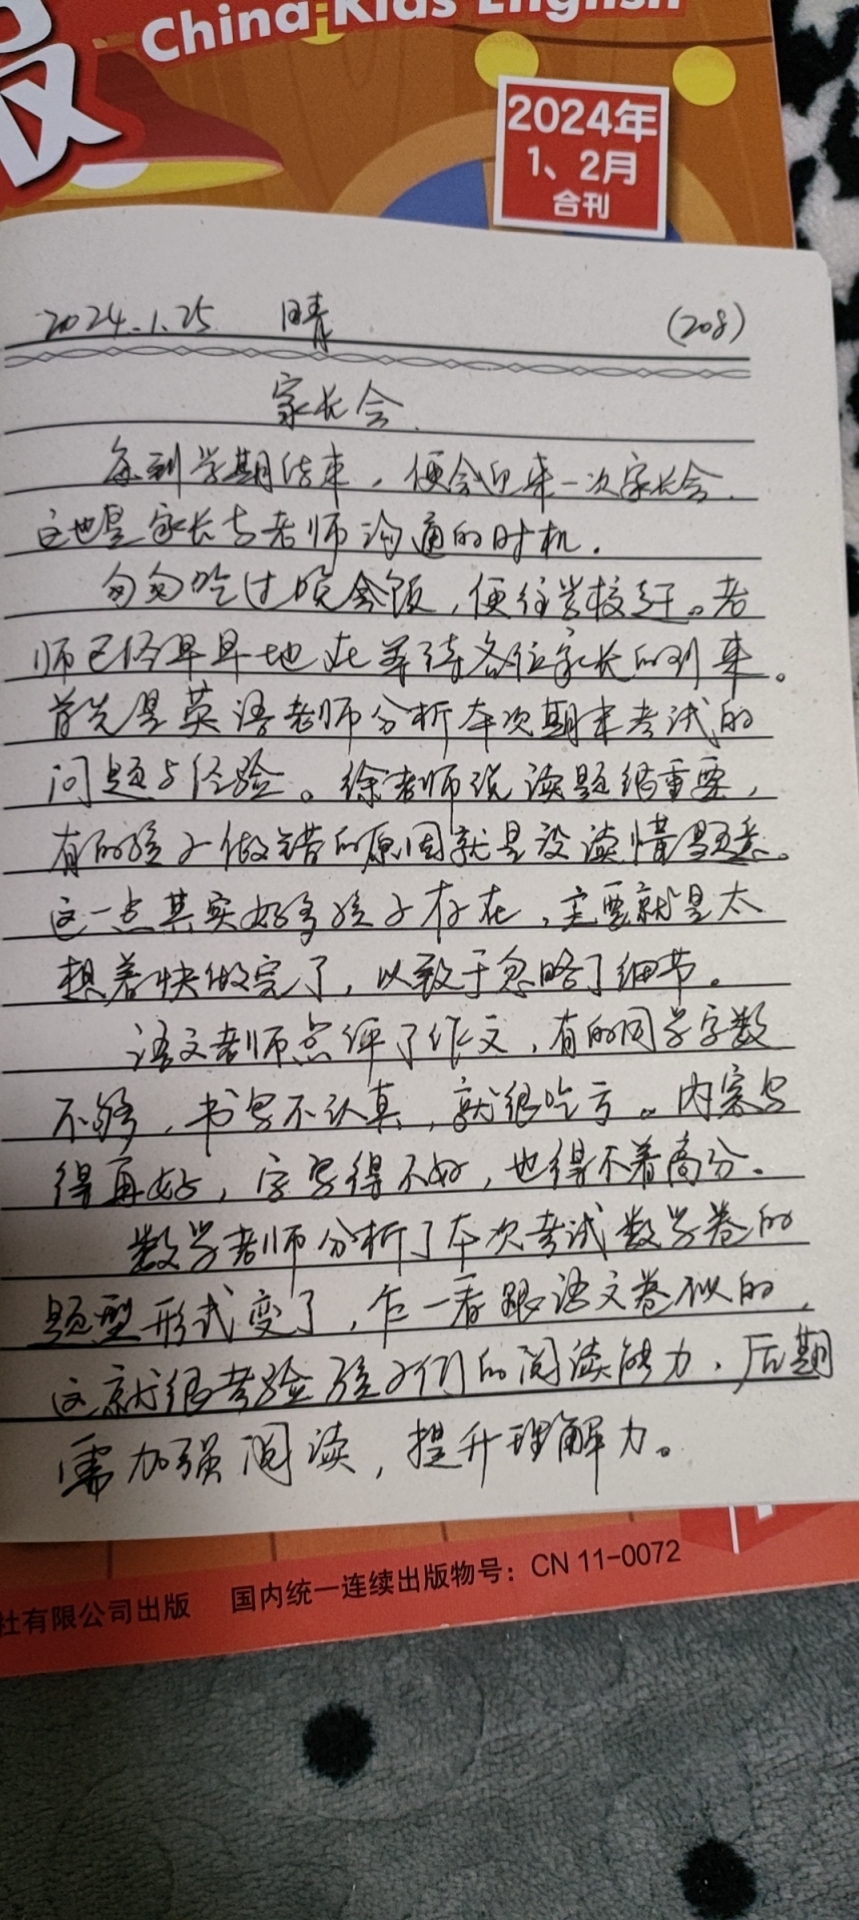 报
China Kids English
2024年
1、2月
合刊
2024.1.25 晴 (208)
家长会.
每到学期结束，便会迎来一次家长会.
这也是家长与老师沟通的时机.
匆匆吃过晚餐饭，便往学校赶。老
师已经早早地在等待各位家长的到来。
首先是英语老师分析本次期末考试的
问题与经验。徐老师说读题很重要，
有的孩子做错的原因就是没读懂题意。
这一点其实好多孩子存在，主要就是太
想着快做完了，以致于忽略了细节。
语文老师点评了作文，有的同学字数
不够，书写不认真，就很吃亏。内容写
得再好，字写得不好，也得不着高分。
数学老师分析了本次考试数学卷的
题型形式变了，乍一看跟语文卷似的，
这就很考验孩子们的阅读能力，后期
需加强阅读，提升理解力。
社有限公司出版 国内统一连续出版物号：CN 11-0072